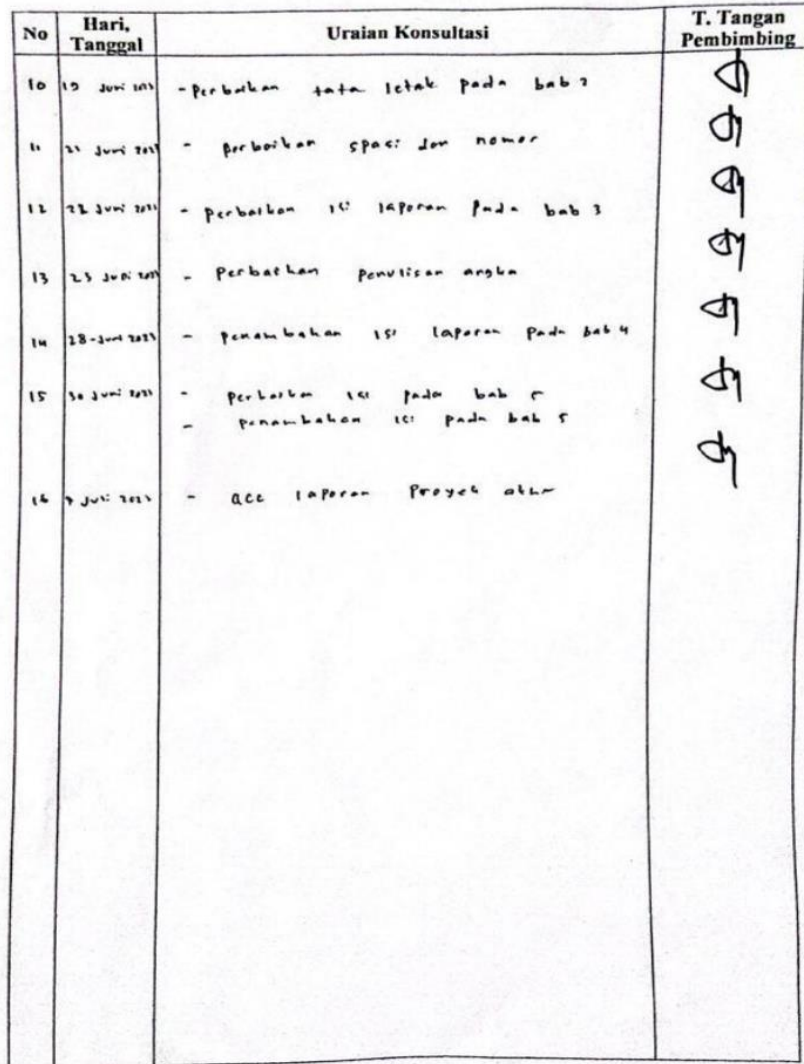 No Hari, Tanggal Uraian Konsultasi T. Tangan Pembimbing
10 19 Juni 2023 - Perbaikan tata letak pada bab 2
11 21 Juni 2023 - perbaikan spasi dan nomor
12 22 Juni 2023 - perbaikan isi laporan pada bab 3
13 23 Juni 2023 - Perbaikan penulisan angka
14 28-Juni 2023 - penambahan isi laporan pada bab 4
15 30 Juni 2023 - perbaikan isi pada bab 5
- penambahan isi pada bab 5
16 Juli 2023 - acc laporan Proyek akhir